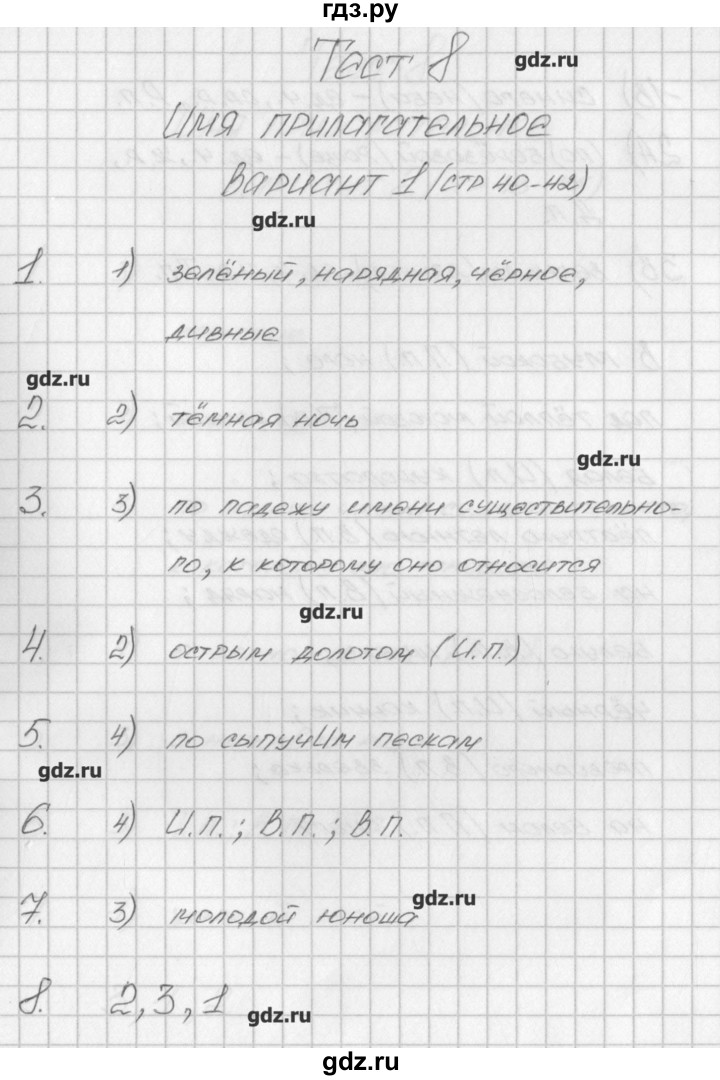 гдз.ру
Тест 8
gdz.ru
Имя прилагательное
Вариант 1 (стр 40-42)
gdz.ru
1. 1) зелёный, нарядная, чёрное,
дивные
gdz.ru
2. 2) тёмная ночь
gdz.ru
3. 3) по падежу имени существительно-
го, к которому оно относится
gdz.ru
4. 2) острым долотом (И.П.)
5. 4) по сыпучИм пескам
gdz.ru
6. 4) И.П.; В.П.; В.П.
gdz.ru
7. 3) молодой юноша
8. 2, 3, 1
gdz.ru
gdz.ru